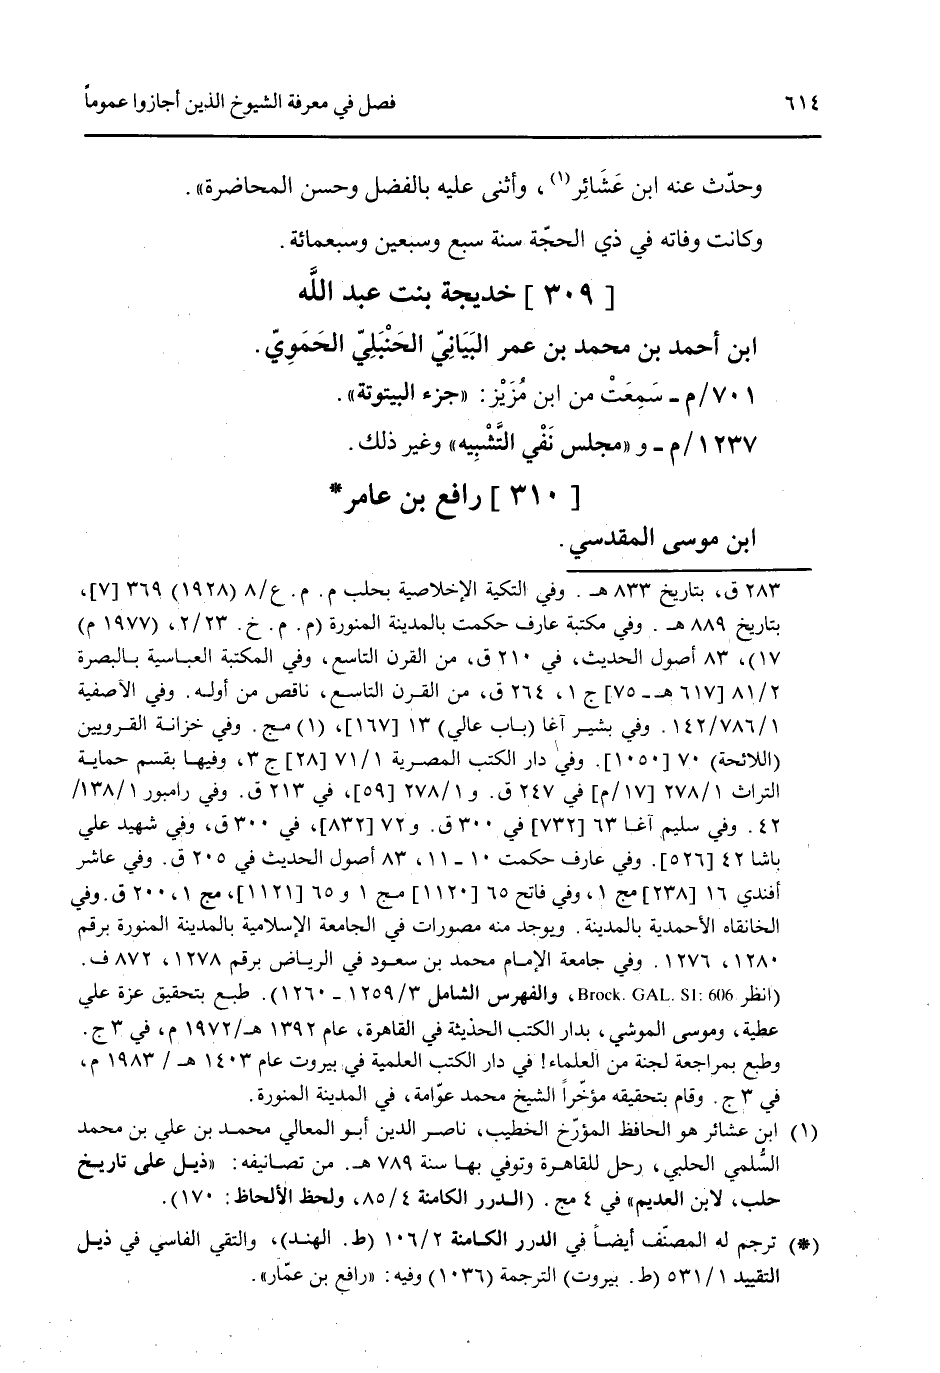 ٦١٤ فصل في معرفة الشيوخ الذين أجازوا عموماً
وحدّث عنه ابن عَشَائِر(١)، وأثنى عليه بالفضل وحسن المحاضرة».
وكانت وفاته في ذي الحجّة سنة سبع وسبعين وسبعمائة.
[ ٣٠٩ ] خديجة بنت عبد اللَّه
ابن أحمد بن محمد بن عمر البَيَانِيّ الحَنْبَلِيّ الحَمَوِيّ.
٧٠١/م ـ سَمِعَتْ من ابن مُزَيْز: «جزء البيتوتة».
١٢٣٧/م ـ و «مجلس نَفْي التَّشْبِيه» وغير ذلك.
[ ٣١٠ ] رافع بن عامر*
ابن موسى المقدسي.
٢٨٣ ق، بتاريخ ٨٣٣ هـ. وفي التكية الإخلاصية بحلب م. م. ع/٨ (١٩٢٨) ٣٦٩ [٧]،
بتاريخ ٨٨٩ هـ. وفي مكتبة عارف حكمت بالمدينة المنورة (م. م. خ. ٢/٢٣، (١٩٧٧ م)
١٧)، ٨٣ أصول الحديث، في ٢١٠ ق، من القرن التاسع، وفي المكتبة العباسية بالبصرة
٨١/٢ [٦١٧ هـ ـ ٧٥] ج ١، ٢٦٤ ق، من القرن التاسع، ناقص من أوله. وفي الآصفية
١٤٢/٧٨٦/١. وفي بشير آغا (باب عالي) ١٣ [١٦٧]، (١) مج. وفي خزانة القرويين
(اللائحة) ٧٠ [١٠٥٠]. وفي دار الكتب المصرية ٧١/١ [٢٨] ج ٣، وفيها بقسم حماية
التراث ٢٧٨/١ [١٧/م] في ٢٤٧ ق. و ٢٧٨/١ [٥٩]، في ٢١٣ ق. وفي رامبور ١٣٨/١/
٤٢. وفي سليم آغا ٦٣ [٧٣٢] في ٣٠٠ ق. و ٧٢ [٨٣٢]، في ٣٠٠ ق، وفي شهيد علي
باشا ٤٢ [٥٢٦]. وفي عارف حكمت ١٠ ـ ١١، ٨٣ أصول الحديث في ٢٠٥ ق. وفي عاشر
أفندي ١٦ [٢٣٨] مج ١، وفي فاتح ٦٥ [١١٢٠] مج ١ و ٦٥ [١١٢١]، مج ١، ٢٠٠ ق. وفي
الخانقاه الأحمدية بالمدينة. ويوجد منه مصورات في الجامعة الإسلامية بالمدينة المنورة برقم
١٢٨٠، ١٢٧٦. وفي جامعة الإمام محمد بن سعود في الرياض برقم ١٢٧٨، ٨٧٢ ف.
(انظر Brock. GAL. S1: 606، والفهرس الشامل ١٢٥٩/٣ ـ ١٢٦٠). طبع بتحقيق عزة علي
عطية، وموسى الموشي، بدار الكتب الحديثة في القاهرة، عام ١٣٩٢ هـ/١٩٧٢ م، في ٣ ج.
وطبع بمراجعة لجنة من العلماء! في دار الكتب العلمية في بيروت عام ١٤٠٣ هـ / ١٩٨٣ م،
في ٣ ج. وقام بتحقيقه مؤخّراً الشيخ محمد عوّامة، في المدينة المنورة.
(١) ابن عشائر هو الحافظ المؤرّخ الخطيب، ناصر الدين أبو المعالي محمد بن علي بن محمد
السُّلمي الحلبي، رحل للقاهرة وتوفي بها سنة ٧٨٩ هـ. من تصانيفه: «ذيل على تاريخ
حلب، لابن العديم» في ٤ مج. (الدرر الكامنة ٨٥/٤، ولحظ الألحاظ: ١٧٠).
(*) ترجم له المصنّف أيضاً في الدرر الكامنة ١٠٦/٢ (ط. الهند)، والتقي الفاسي في ذيل
التقييد ٥٣١/١ (ط. بيروت) الترجمة (١٠٣٦) وفيه: «رافع بن عمّار».